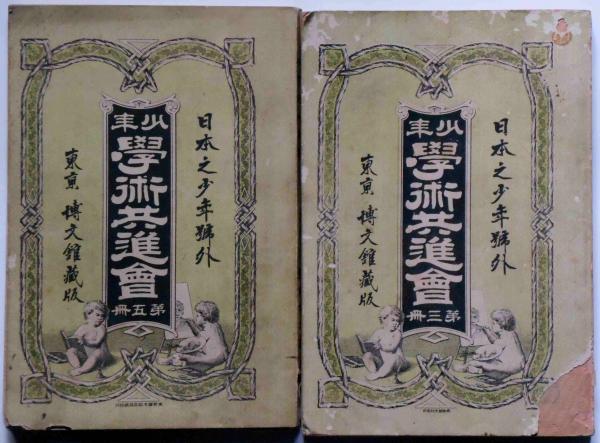 日本之少年號外
少年
學術共進會
第五冊
東京 博文館藏版
日本之少年號外
少年
學術共進會
第三冊
東京 博文館藏版